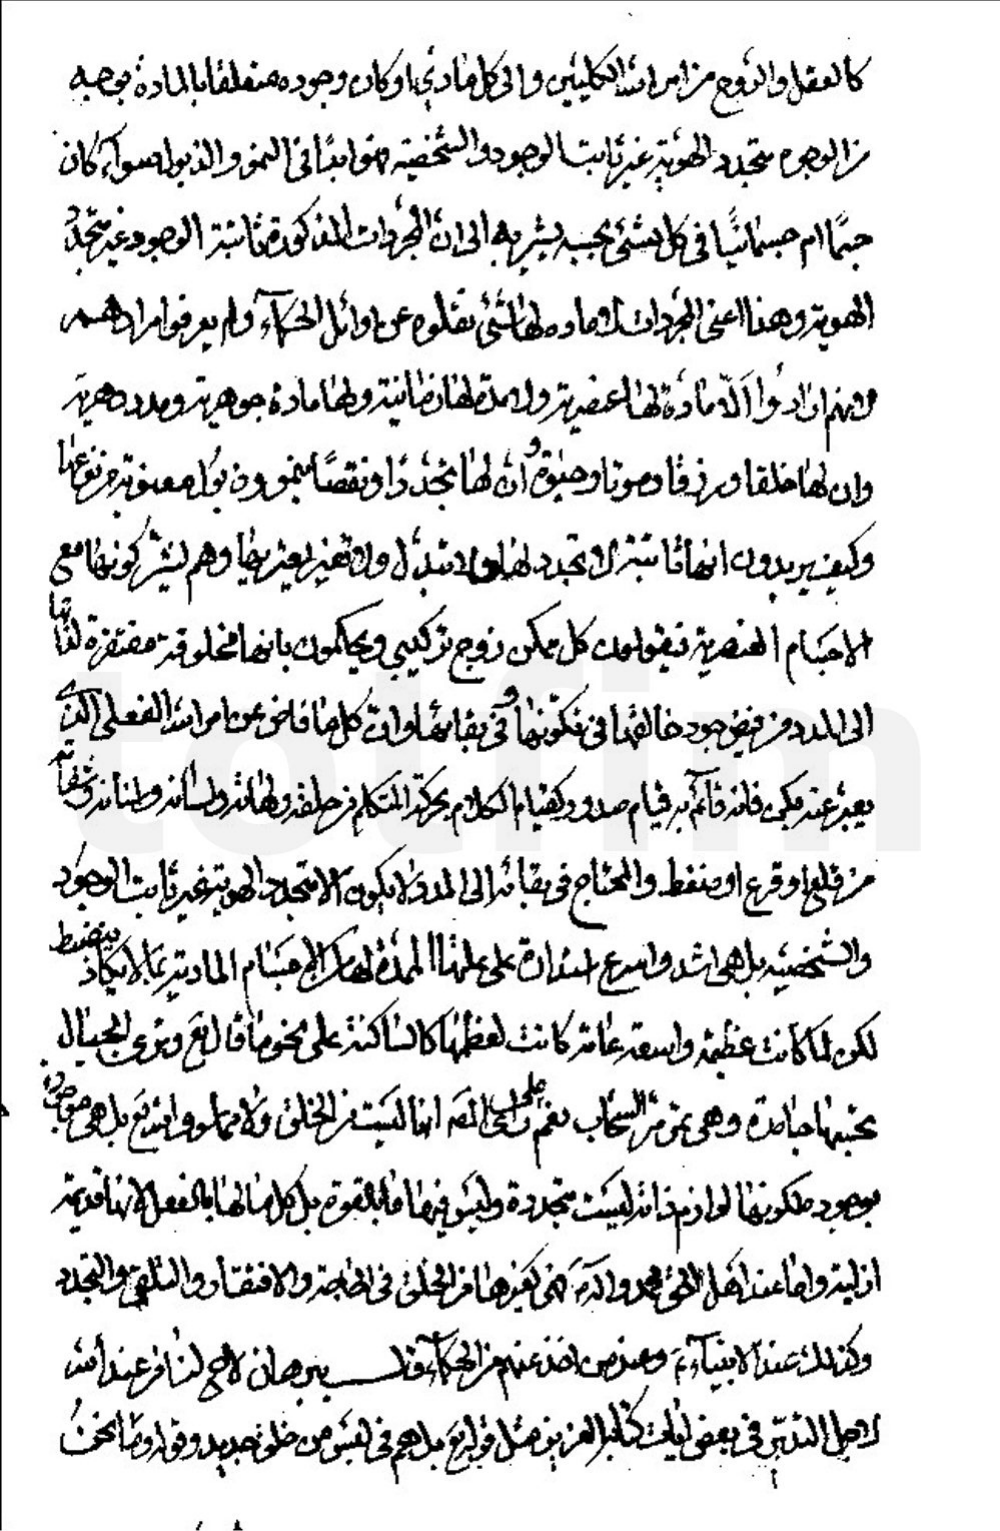 كالعقل والروح من امر الله الكليين والى كل مادي او كان وجوده متعلقا بالمادة بوجه
من الوجوه متجدد الهوية غير ثابت الوجود والشخصية فهو ابدا فى النمو والذبول سواء كان
جسما ام جسمانيا فى كل شئ بحسبه يشير به الى ان المجردات المذكورة ثابتة الوجود غير متجدد
الهوية وهذا اعنى المجردات لا مادة لها شئ نقلوه عن اوائل الحكماء ولم يعرفوا مرادهم
وانهم ارادوا ان لا مادة لها عنصرية ولا مدة لها زمانية ولها مادة جوهرية ومدد دهرية
وان لها خلقا ورزقا وموتا وحيوة وان لها تجددا ونقصا بنمو وذبول معنوية من نوعها
وكيف يريدون انها ثابتة لا تجدد لها ولا تبدل ولا تغير يعتريها وهم كونها مع
الاجسام العنصرية فيقولون كل ممكن زوج تركيبي ويحكمون بانها مخلوقة مفتقرة لذاتها
الى المدد من فيض جود خالقها فى تكونها وفى بقائها وان كل ما فاض عن امر الله الفعلى الذى
يعبر عنه بكن فانه قائم به قيام صدور كقيام الكلام بحركة المتكلم من حلقه ولهاته ولسانه واسنانه وشفاته
من قلع او قرع او ضغط والمحتاج فى بقائه الى المدد لا يكون الا متجدد الهوية غير ثابت الوجود
والشخصية بل هى اشد واسرع استدارة على علتها الممدة لها من الاجسام المادية بما لا يكاد ينضبط
لكن لما كانت عظيمة واسعة عامة كانت لعظمها كالساكنة على نحو ما قال تع وترى الجبال
تحسبها جامدة وهى تمر مر السحاب نعم على راى المصـ انها ليست من الخلق ولا مما سوى الله تع بل هى موجودة
بوجود ملكوتها لوازم ذاته ليست متجددة وليس فيها ما بالقوة بل كل ما لها بالفعل لانها قديمة
ازلية واما عند اهل الحق محمد وآله ص فهى كغيرها من الخلق فى الحاجة والافتقار والتلقى والتجدد
وكذلك عند الانبياء ع وعند من اخذ عنهم من الحكماء قال ببرهان لاح لنا من عند الله
لاجل التدبر فى بعض آيات كتابه العزيز مثل قوله تع بل هم فى لبس من خلق جديد وقوله وما نحن